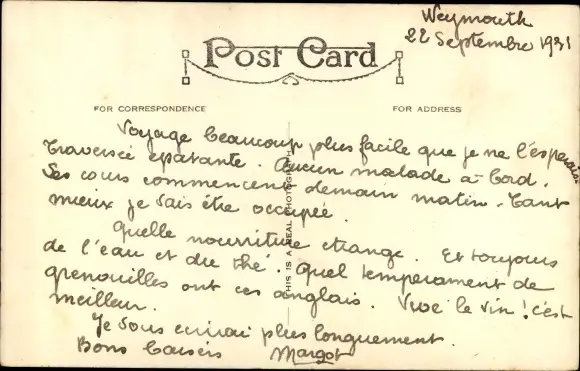 Weymouth
22 Septembre 1931
Post Card
FOR CORRESPONDENCE
FOR ADDRESS
Voyage beaucoup plus facile que je ne l'espérais
Traversée épatante. Aucun malade à bord.
Ses cours commencent demain matin. Tant
mieux je vais être occupée.
Quelle nourriture étrange. Et toujours
de l'eau et du thé. Quel temperament de
grenouilles ont ces anglais. Vive le vin ! c'est
meilleur.
Je vous ecrirai plus longuement.
Bons baisers Margot
THIS IS A REAL PHOTOGRAPH